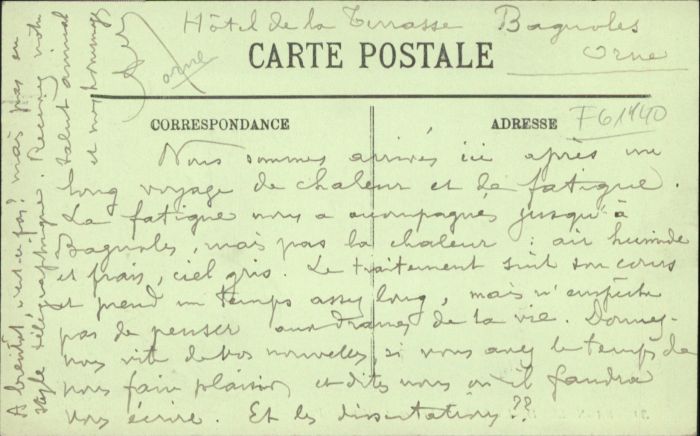 Hôtel de la Terrasse Bagnoles
Orne
orne
CARTE POSTALE
CORRESPONDANCE
ADRESSE
F61140
Nous sommes arrivés ici après un
long voyage de chaleur et de fatigue.
La fatigue nous a accompagnés jusqu'à
Bagnoles, mais pas la chaleur : air humide
et frais, ciel gris. Le traitement suit son cours
et prend un temps assez long, mais n'empêche
pas de penser aux drames de la vie. Donnez-
nous vite de vos nouvelles, si vous avez le temps de
nous faire plaisir, et dites nous où il faudra
vous écrire. Et les dissertations ??
A bientôt, n'est-ce pas? mais pas en
style télégraphique. Recevez notre
salut amical
et nos hommages